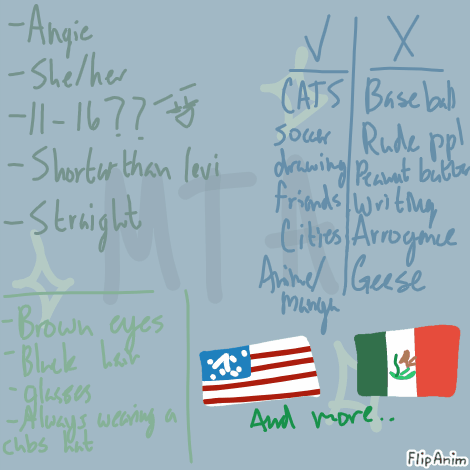 -Angie
-She/her
-11-16??
-Shorter than levi
-Straight
√ X
CATS Baseball
soccer Rude ppl
drawing Peanut butter
friends Writing
Cities Arrogance
Anime/
Manga
Geese
MTA
-Brown eyes
-Black hair
-glasses
-Always wearing a
chbs hat
And more..
FlipAnim